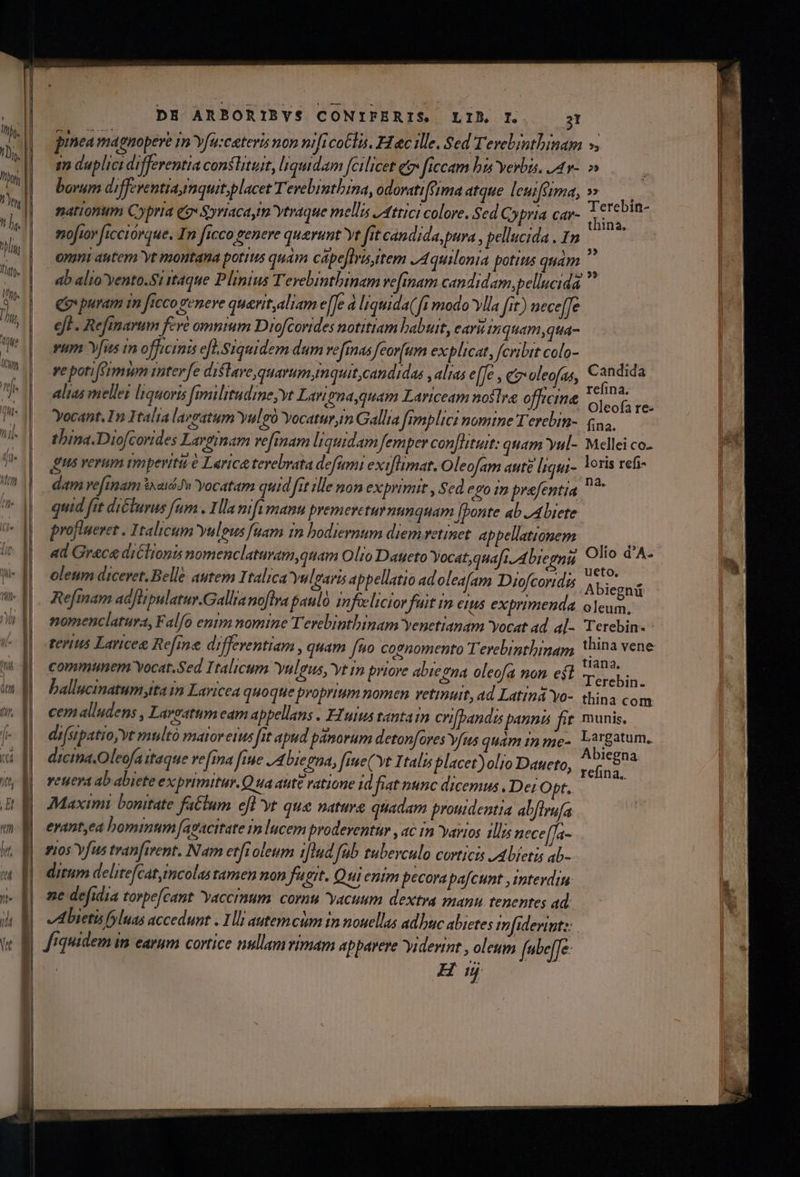 DE ARBORIBVS CONIFERIS. LIB. I. 31
pinea magnopere in vsu: cæteris non nisi coctis. Hæc ille. Sed Terebinthinam »
in duplici differentia constituit, liquidam scilicet & siccam his verbis. Ar- »
borum differentia, inquit, placet Terebinthina, odoratissima atque leuissima, »
nationum Cypria & Syriaca, in vtraque mellis Attici colore. Sed Cypria car- Terebin-
nosior sicciórque. In sicco genere quærunt vt sit candida, pura, pellucida. In thina.
omni autem vt montana potius quàm capestris, item Aquilonia potius quàm ”
ab alio vento. Si itaque Plinius Terebinthinam resinam candidam, pellucidā ”
& puram in sicco genere quærit, aliam esse à liquida (si modo vlla sit) necesse
est. Resinarum ferè omnium Dioscorides notitiam habuit, earū inquam, qua-
rum vsus in officinis est. Siquidem dum resinas seorsum explicat, scribit colo-
re potissimùm inter se distare, quarum, inquit, candidas, alias esse, & oleosas, Candida
resina.
alias mellei liquoris similitudine, vt Larigna, quam Lariceam nostræ officinæ Oleosa re-
vocant. In Italia largatum vulgò vocatur, in Gallia simplici nomine Terebin- sina.
thina. Dioscorides Larginam resinam liquidam semper constituit: quam vul- Mellei co-
gus rerum imperitū è Larice terebrata desumi existimat. Oleosam autē liqui- loris resi-
dam resinam ἐλαιώδη vocatam quid sit ille non exprimit, Sed ego in præsentia næ.
quid sit dicturus sum. Illa nisi manu premeretur nunquam sponte ab Abiete
proflueret. Italicum vulgus suam in hodiernum diem retinet appellationem
ad Græcæ dictionis nomenclaturam, quam Olio Daueto vocat, quasi Abiegnū Olio d'A-
ueto.
oleum diceret. Bellè autem Italica vulgaris appellatio ad oleasam Dioscoridis Abiegnū
Resinam adstipulatur. Gallia nostra paulò infœlicior fuit in eius exprimenda oleum.
nomenclatura, Falso enim nomine Terebinthinam venetianam vocat ad al- Terebin-
terius Lariceæ Resinæ differentiam, quam suo cognomento Terebinthinam thina vene
tiana.
communem vocat. Sed Italicum vulgus, vt in priore abiegna oleosa non est Terebin-
hallucinatum, ita in Laricea quoque proprium nomen retinuit, ad Latinā vo- thina com
cem alludens, Largatum eam appellans. Huius tanta in crispandis pannis sit munis.
dissipatio, vt multò maior eius sit apud pānorum detonsores vsus quàm in me- Largatum.
dicina. Oleosa itaque resina siue Abiegna, siue (vt Italis placet) olio Daueto, Abiegna
resina.
reuera ab abiete exprimitur. Qua autē ratione id fiat nunc dicemus. Dei Opt.
Maximi bonitate factum est vt quæ naturæ quadam prouidentia abstrusa
erant, ea hominum sagacitate in lucem proderentur, ac in varios illis necessa-
rios vsus transirent. Nam etsi oleum istud sub tuberculo corticis Abietis ab-
ditum delitescat, incolas tamen non fugit. Qui enim pecora pascunt, interdiu
ne desidia torpescant vaccinum cornu vacuum dextra manu tenentes ad
Abietis syluas accedunt. Illi autem cùm in nouellas adhuc abietes insiderint:
siquidem in earum cortice nullam rimam apparere viderint, oleum subesse
H iij